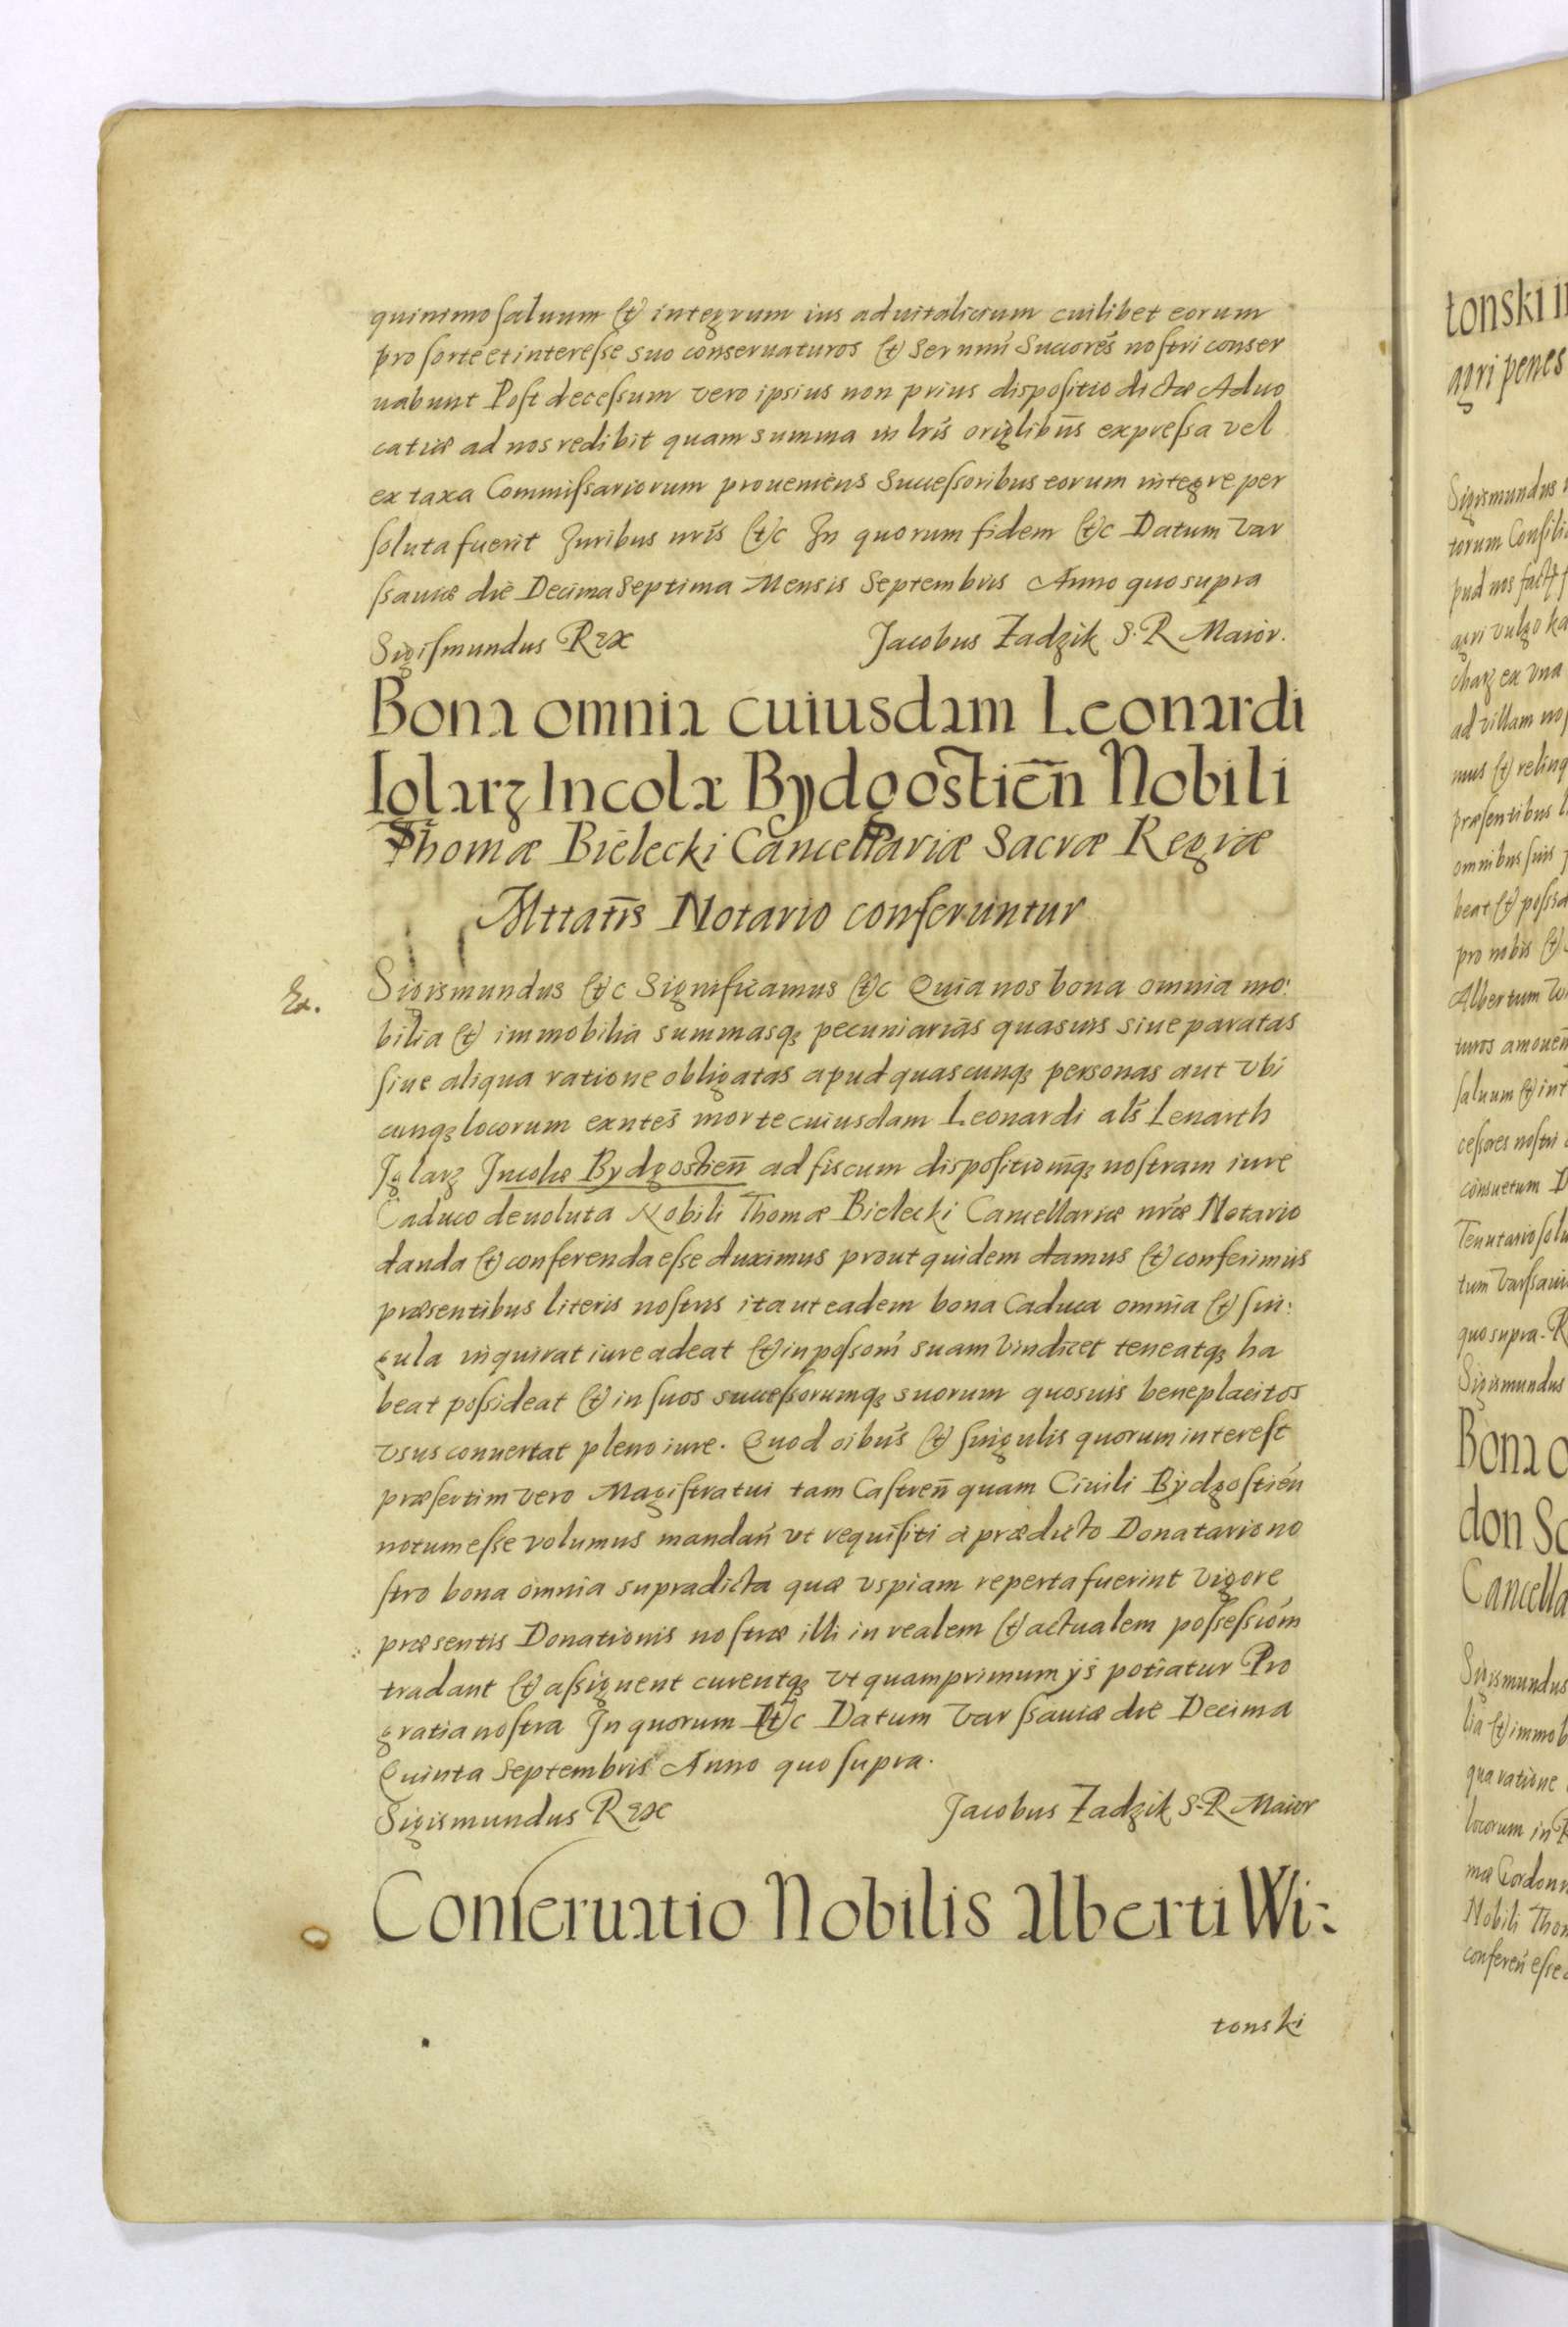 quinimo saluum et integrum ius aduitalicium cuilibet eorum
pro sorte et interesse suo conseruaturos et Ser nmi Succores nostri conser
uabunt Post decessum vero ipsius non prius dispositio dictæ Aduo
catiæ ad nos redibit quam summa in lris origlibus expressa vel
ex taxa Commissariorum proueniens Successoribus eorum integre per
soluta fuerit Juribus nris etc In quorum fidem etc Datum Var
ssauiæ die Decima Septima Mensis Septembris Anno quo supra
Sigismundus Rex Jacobus Zadzik S. R Maior.
Bona omnia cuiusdam Leonardi
Iglarz Incolæ Bydgostien̄ Nobili
Thomæ Bielecki Cancellariæ Sacræ Regiæ
Mttatis Notario conferuntur
Ex.
Sigismundus etc Significamus etc Quia nos bona omnia mo:
bilia et immobilia summasq; pecuniarias quasuis siue paratas
siue aliqua ratione obligatas apud quascunq; personas aut vbi
cunq; locorum exntes morte cuiusdam Leonardi als Lenarth
Jglarz Incolæ Bydgostien̄ ad fiscum dispositiomq; nostram iure
Caduco deuoluta Nobili Thomæ Bielecki Cancellariæ nræ Notario
danda et conferenda esse duximus prout quidem damus et conferimus
præsentibus literis nostris ita ut eadem bona Caduca omnia et sin:
gula inquirat iure adeat et in possom suam vindicet teneatq; ha
beat possideat et in suos successorumq; suorum quosuis beneplacitos
vsus conuertat pleno iure. Quod oibus et singulis quorum interest
præsertim vero Magistratui tam Castren̄ quam Ciuili Bydgostien̄
notum esse volumus mandan̄ vt requisiti a prædicto Donatario no
stro bona omnia supradicta quæ vspiam reperta fuerint vigore
præsentis Donationis nostræ illi in realem et actualem possessiom
tradant et assignent curentq; vt quamprimum ijs potiatur Pro
gratia nostra In quorum etc Datum Varssauiæ die Decima
Quinta Septembris Anno quo supra.
Sigismundus Rex Jacobus Zadzik S. R Maior
Conseruatio Nobilis Alberti Wi:
tonski
tonski
agri penes
Sigismundus
torum Consili
ad villam
præsentibus
omnibus suis
pro nobis et
Albertum
cessores nostri
consuetum
quo supra. R
Sigismundus
Bona o
don Sc
Cancella
Sigismundus
lia et immob
qua ratione
locorum in R
mæ Gordon
Nobili Tho
conferen̄ esse